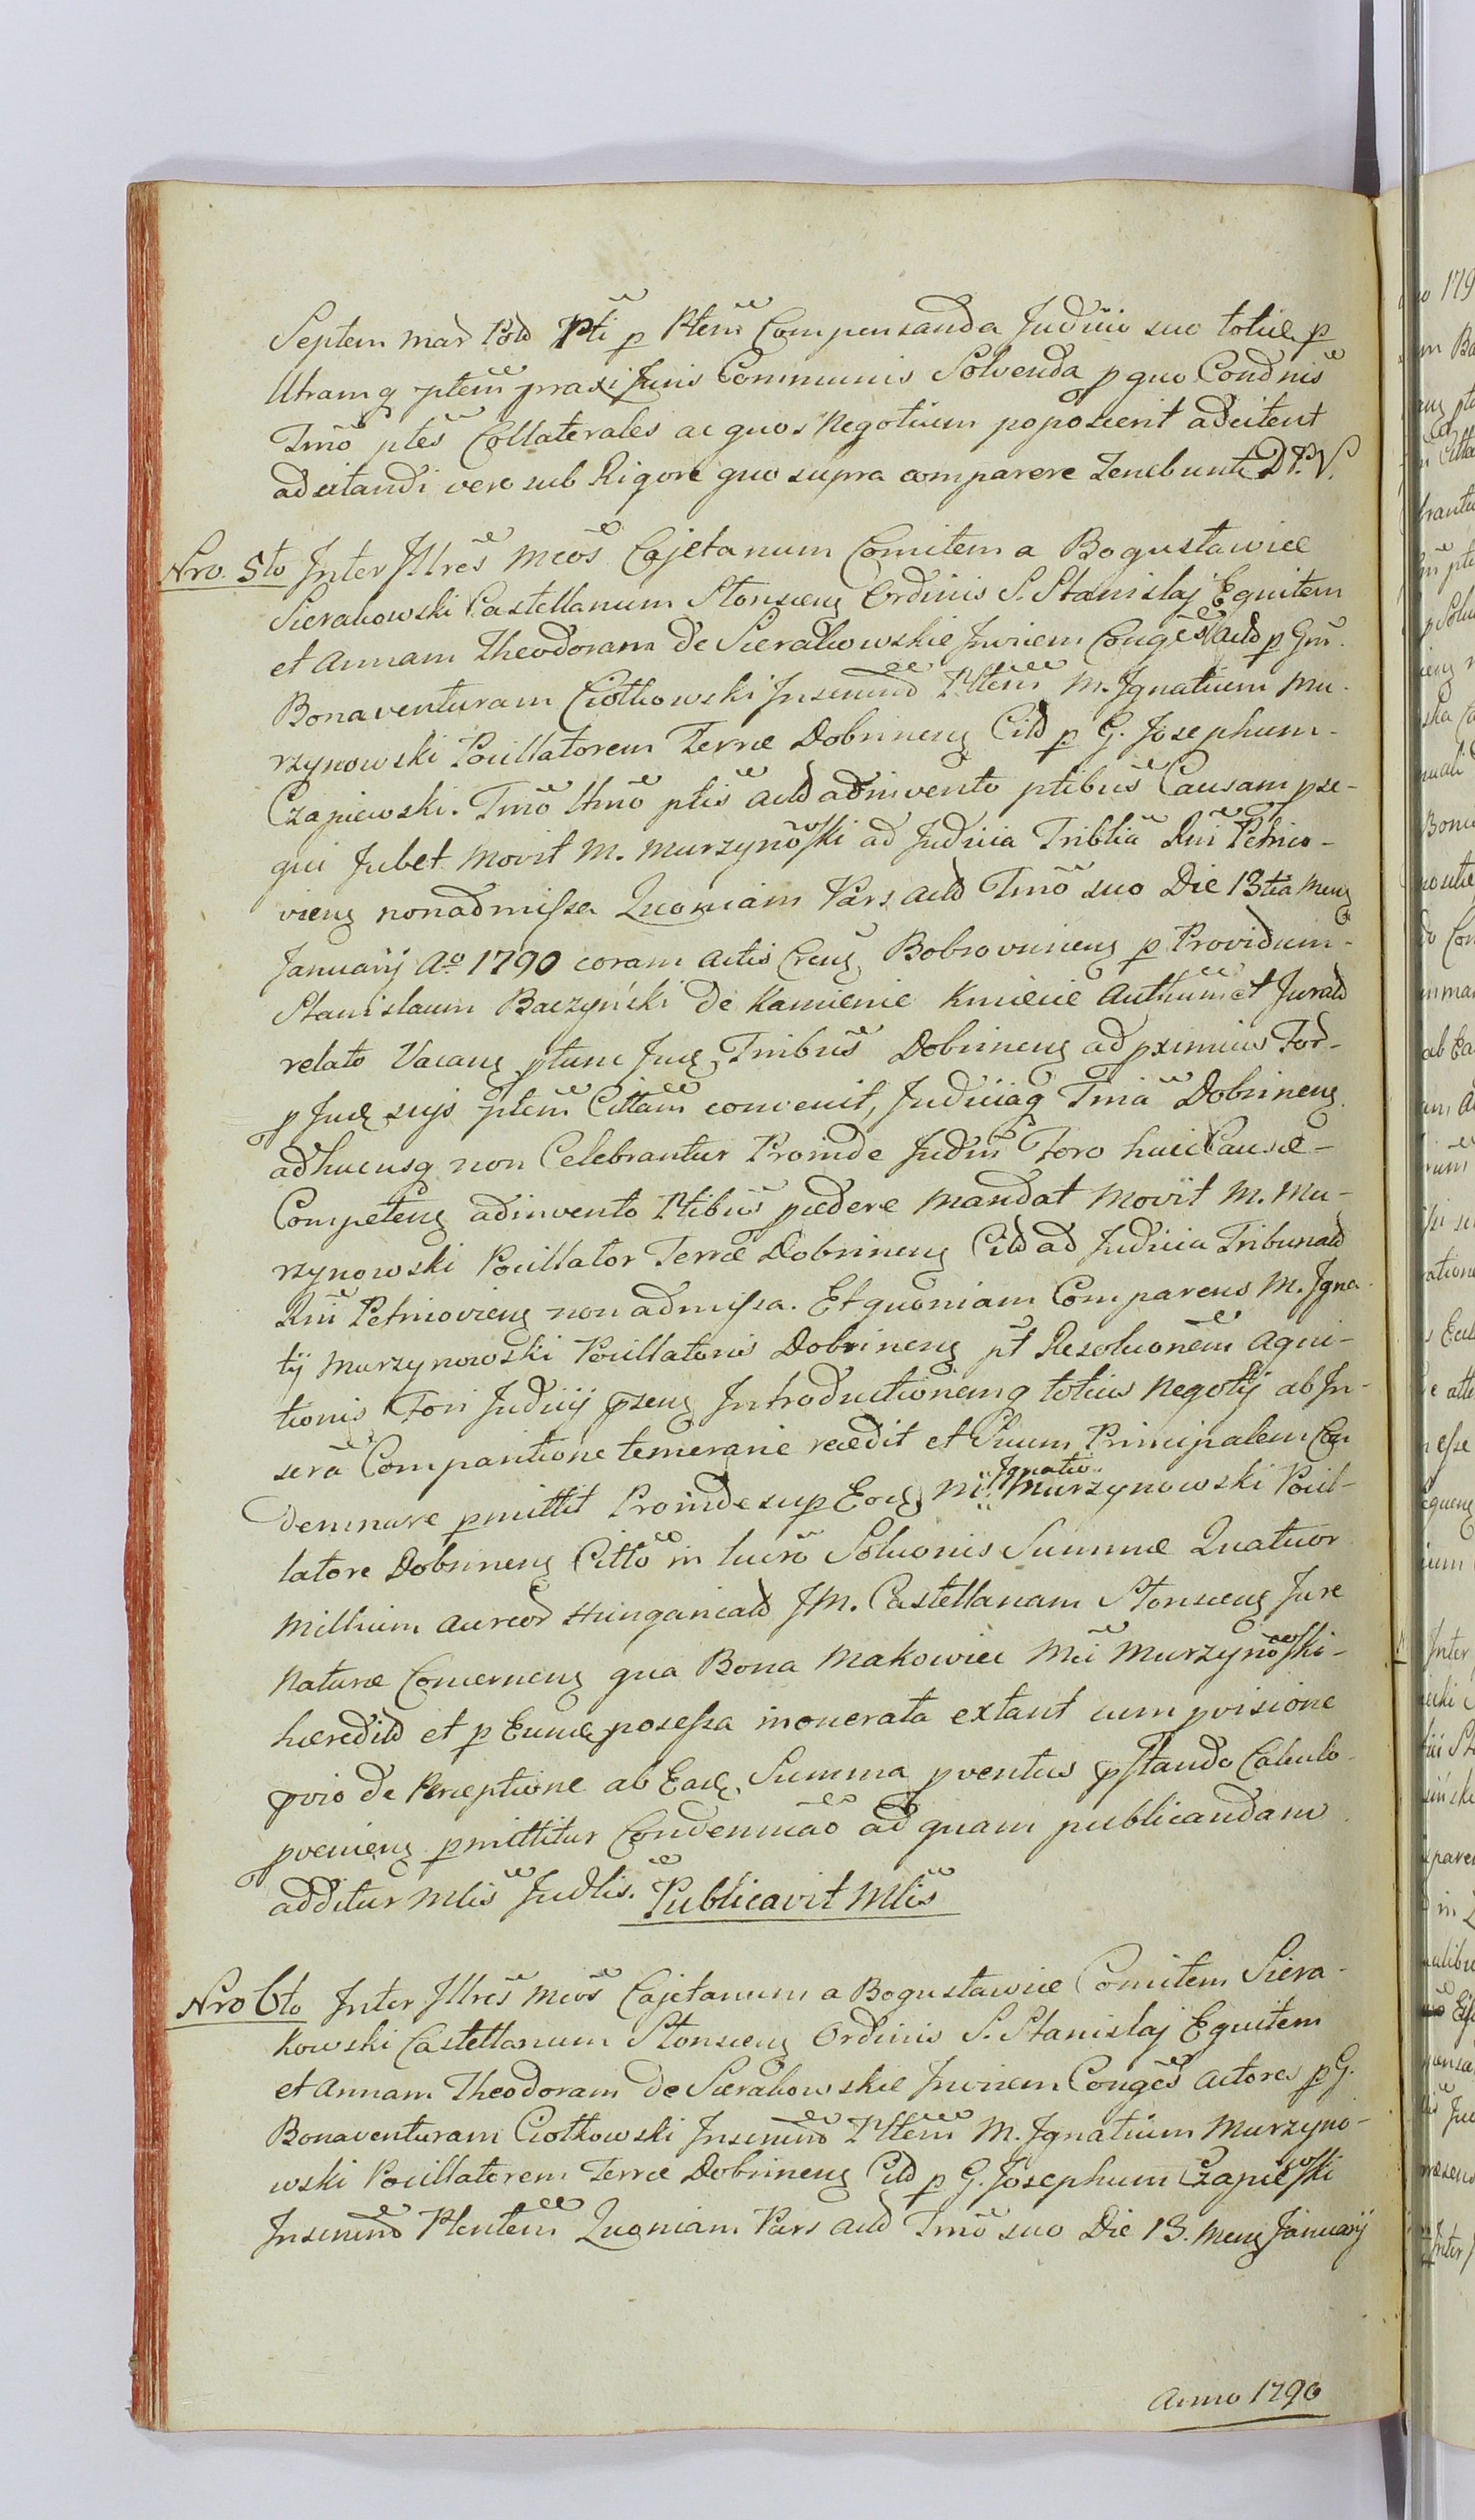 Septem mar Pold Pti p Ptem Compensanda Judicio suo toties p
Utramq ptem praxi Juris Communis Solvenda p quo Condnis
Tmo ptes Collaterales ac quos Negotium poposcerit adcitent
adcitandi vero sub Rigore quo supra comparere Tenebunt D.P.V.
Nro. 5to Inter Illres Mcos Cajetanum Comitem a Bogusławice
Sierakowski Castellanum Słonscens Ordinis S. Stanislaj Equitem
et Annam Theodoram de Sierakowskie Invicem Conges Actd p Gm.
Bonaventuram Ciotkowski Insemmd Pltem M. Ignatium Mu-
rzynowski Pocillatorem Terræ Dobrinens Citd p G. Josephum-
Czapiewski. Tmo Itmo ptis Actd adinvento ptibus Causam pse-
qui Jubet Movit M. Murzynowski ad Judicia Triblia Rni Petrico-
viens nonadmissa Quoniam Pars Actd Tmo suo Die 13tia Mens
Januarij Ao 1790 coram Actis Crens Bobrovnicens p Providum-
Stanislaum Baczyński de Kamienie Kmiecie Authum et Jurald
relato Vacans ptunc Jucs Tnibus Dobrinens ad pximius Fod-
p Jucs sujs ptem Cittam convenit, Judiciaq Tnia Dobrinens
adhucusq non Celebrantur Proinde Judm Foro huic Causæ-
Competens adinvento Ptibus pcedere Mandat Movit M. Mu-
rzynowski Pocillator Terræ Dobrinens Citd ad Judicia Tribunald
Rni Petricoviens non admissa. Et quoniam Comparens M. Igna-
tij Murzynowski Pocillatoris Dobrinens pt Resoluonem Aqui-
tionis Fori Judicij psens Introductionemq totius Negotij ab In-
sera Comparitione temerarie recedit et Suum Principalem Con
demnare pmittit Proinde sup Eods M. Ignatio Murzynowski Pocil-
latore Dobrinens Citto in lucro Soluonis Summæ Quatuor
Millium Aureod Hungaricald JM. Castellanam Słonscens Jure
Naturæ Concernens qua Bona Makowiec Mci Murzynowski-
hæreditd et p Eumq possessa inonerata extant cum pvisione
pvio de Perceptione ab Eads Summa pventus pstando Calculo-
pveniens pmittitur Condemnao ad quam publicandam
additur Mlis Judlis. Publicavit Mlis
Nro 6to Inter Illres Mcos Cajetanum a Bogusławice Comitem Siera-
kowski Castellanum Słonscens Ordinis S. Stanislaj Equitem
et Annam Theodoram de Sierakowskie Invicem Conges Actores p G.
Bonaventuram Ciotkowski Insemmd Pltem M. Ignatium Murzyno-
wski Pocillatorem Terræ Dobrinens Citd p G. Josephum Czapiewski
Insemmd Pltentem Quoniam Pars Actd Tmo suo Die 13. Mens Januarij
Anno 1790